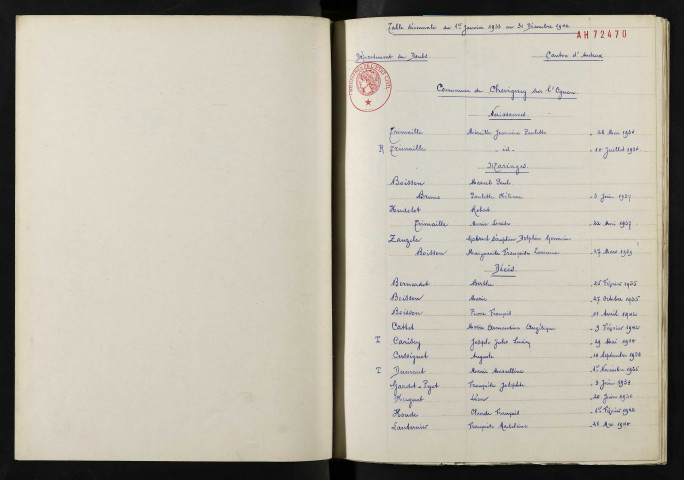 Table décennale du 1er Janvier 1933 au 31 Décembre 1942
AH 72470
Département du Doubs Canton d'Audeux
Commune de Chevigney sur l'Ognon
Naissances
Trimaille Mireille Jeannine Paulette
R Trimaille - id -
Mariages
Boisson Marcel Paul
Bruno Paulette 3 Juin 1937
Hudelot Robert
Trimaille Marie 22 Mai 1937
Zangele Delphin Germain
Boisson Marguerite Françoise 27 Mars 1939
Décès
Bernardot Berthe 25 Février 1935
Boisson Marie 27 Octobre 1935
Boisson Pierre François 11 Avril 1942
Cattet Marie Clémentine Angélique 9 Février 1942
T Carisey Joseph Jules 29 Mai 1940
Cussignet Auguste 10 Septembre
T Dumont Marie Marcelline 1er Novembre 1935
Gardot-Pyot Françoise 3 Juin 1938
Huguet Léon
Houde Claude François 1er Février 1942
Lanternier Françoise Madeleine